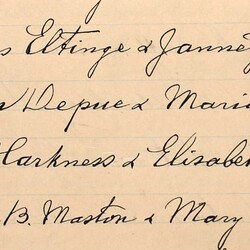 s Eltinge & Janne
Depue & Maria
Harkness & Elisabe
B. Maston & Mary